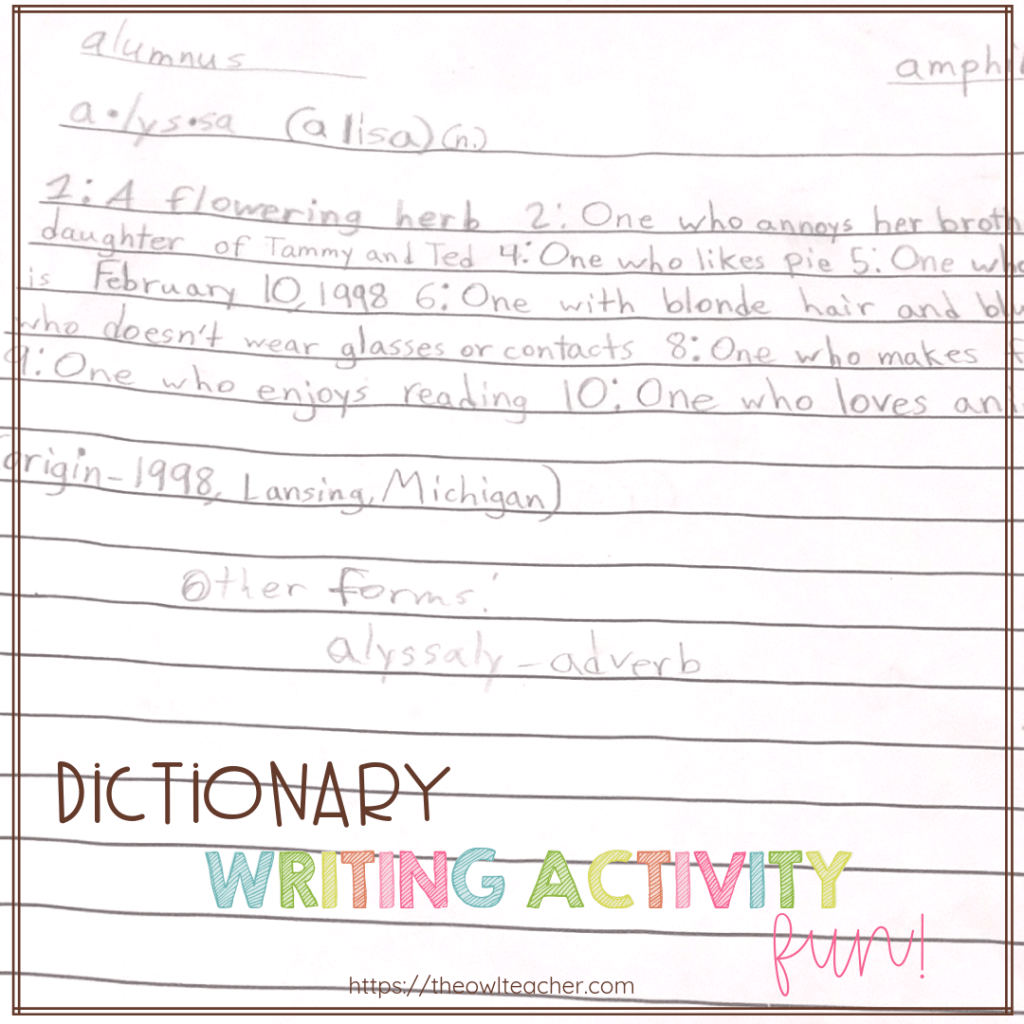 alumnus
amphi
a•lys•sa (a lisa) (n.)
1: A flowering herb 2: One who annoys her broth
daughter of Tammy and Ted 4: One who likes pie 5: One who
is February 10, 1998 6: One with blonde hair and blu
who doesn't wear glasses or contacts 8: One who makes f
9: One who enjoys reading 10: One who loves ani
(origin - 1998, Lansing, Michigan)
Other forms:
alyssaly - adverb
DICTIONARY
WRITING ACTIVITY
fun!
https://theowlteacher.com